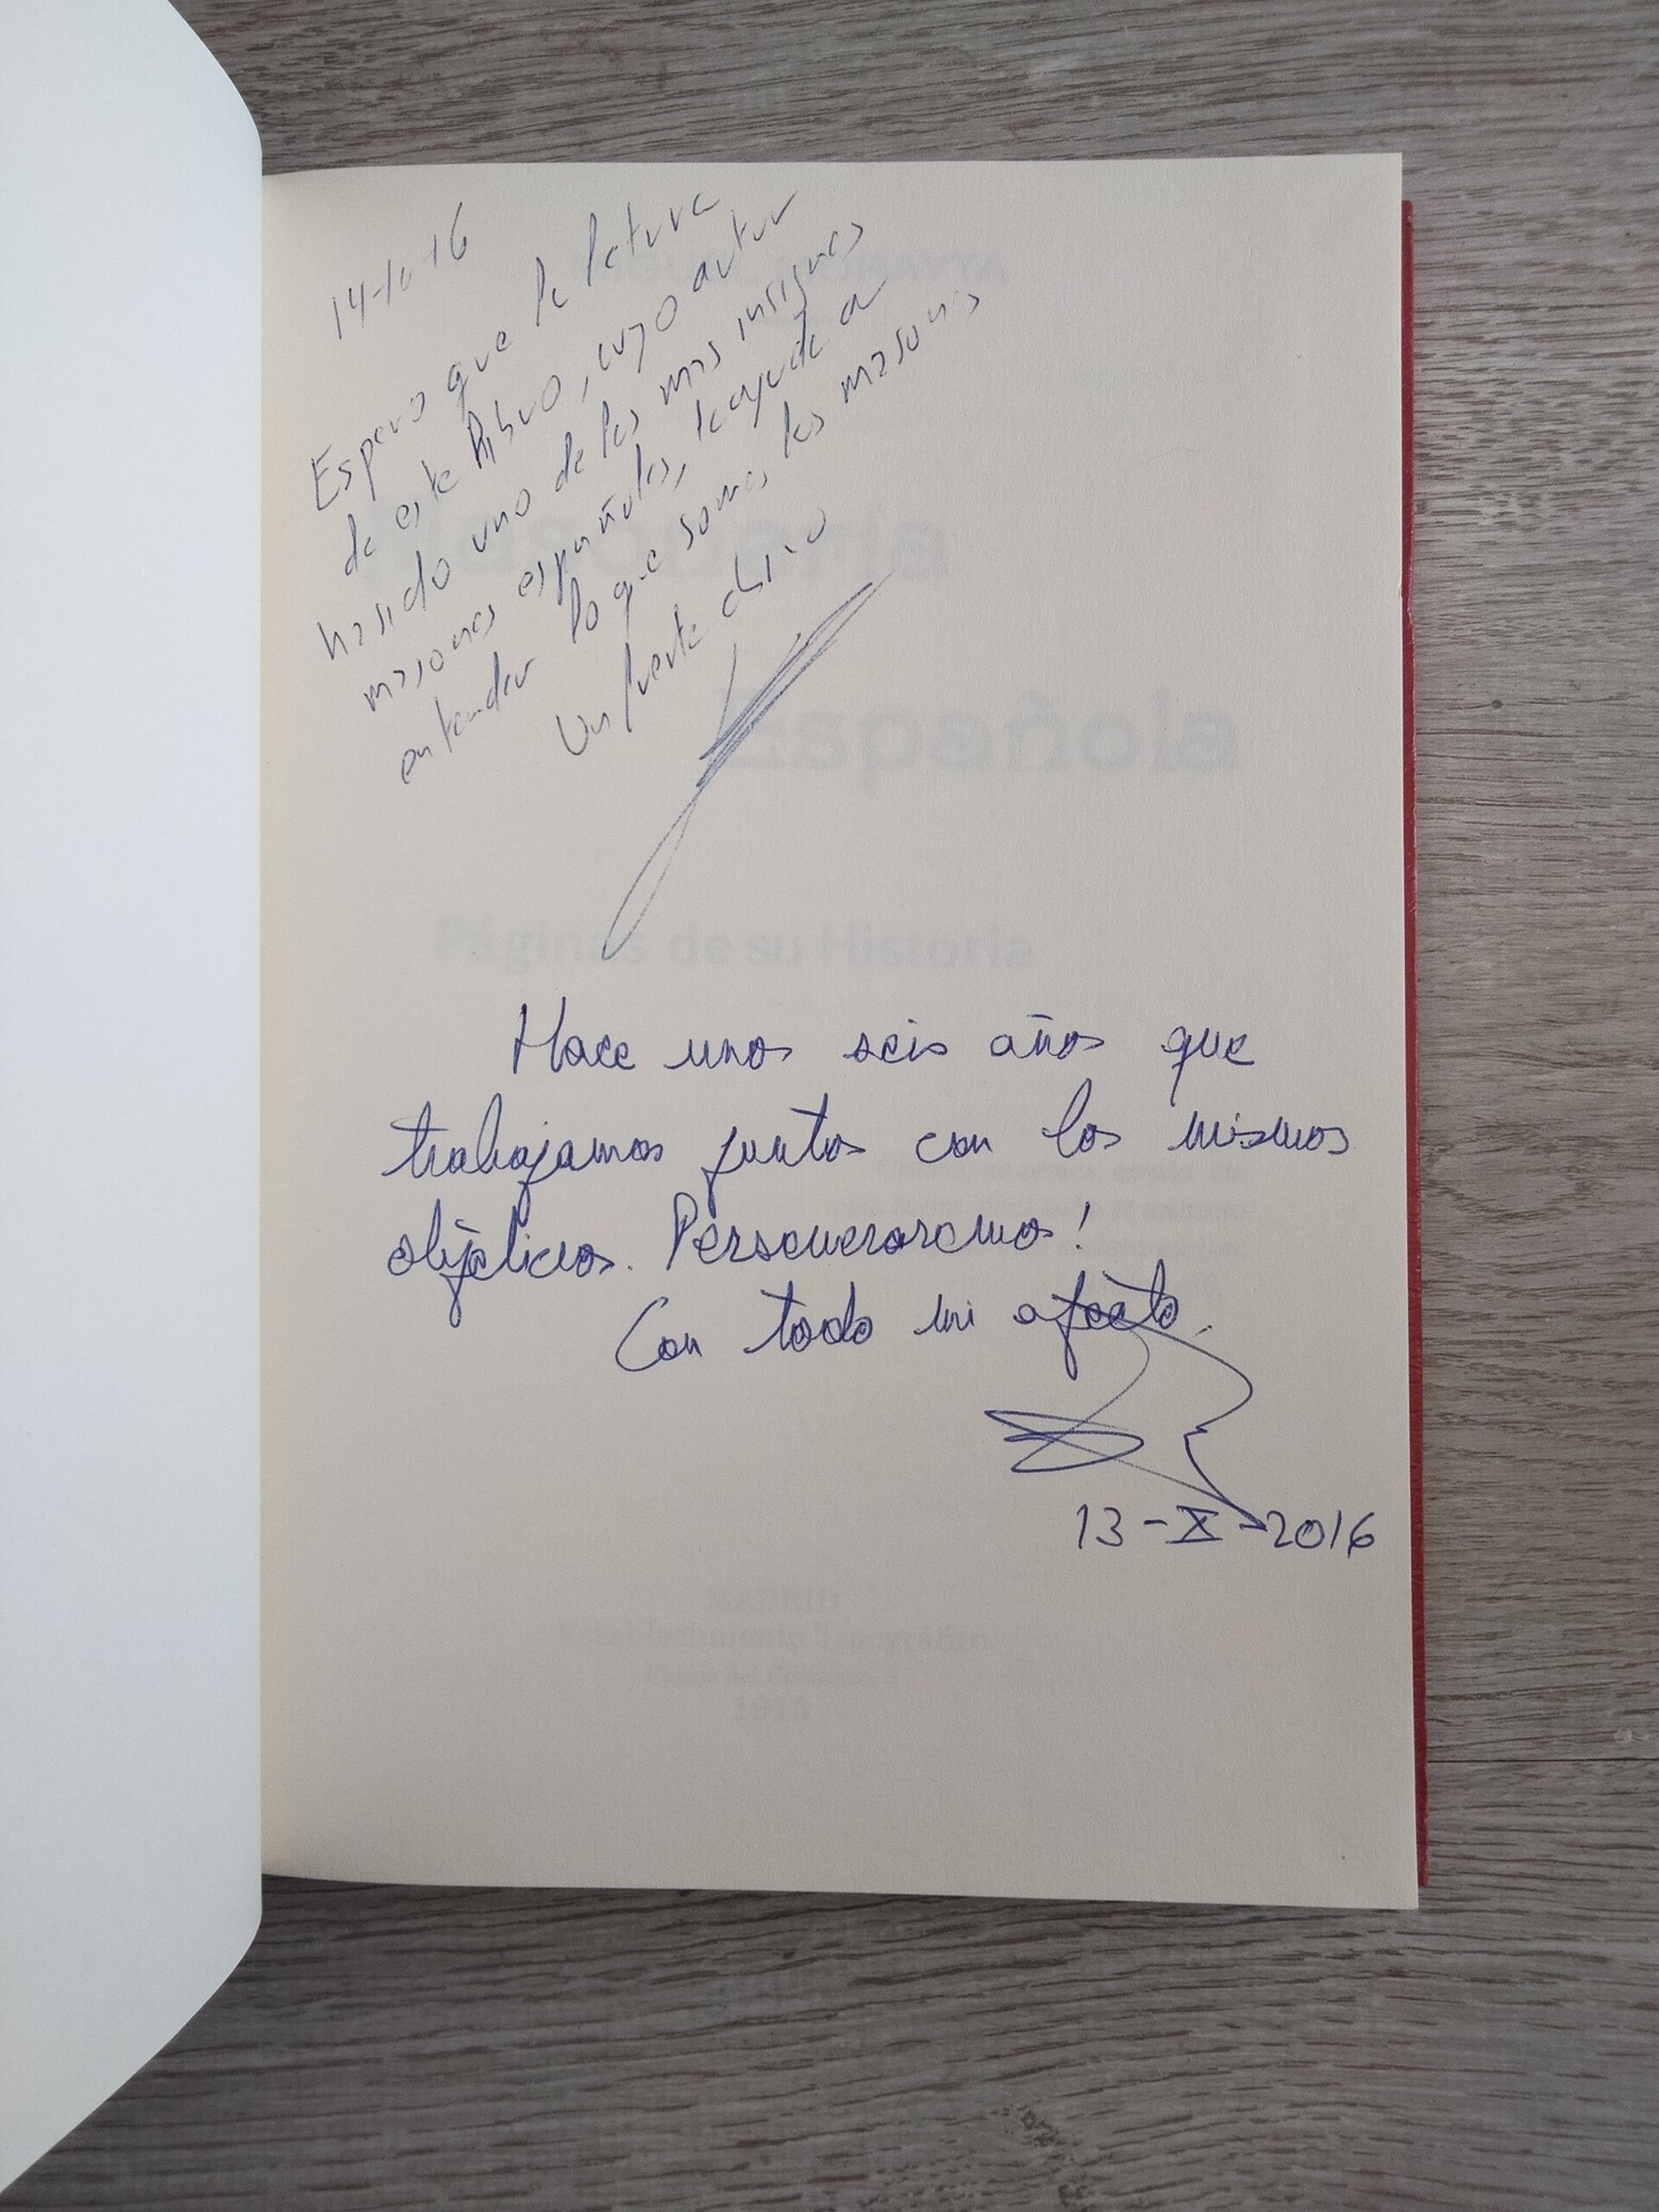 14-10-16
Espero que la lectura
de este libro, cuyo autor
ha sido uno de los mas insignes
masones españoles, le ayude a
entender lo que somos los masones
Un fuerte
Masonería
Española
Páginas de su Historia
Hace unos seis años que
trabajamos juntos con los mismos
objetivos. Perseveraremos!
Con todo mi afecto.
13-X-2016
MADRID
Establecimiento Tipográfico